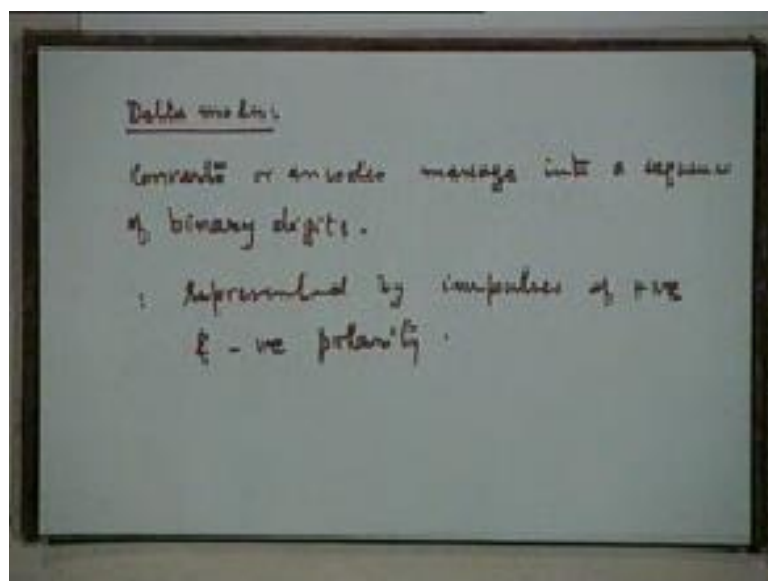 Delta modn:
Converts or encodes message into a sequence
of binary digits.
: Represented by impulses of +ve
& -ve polarity.